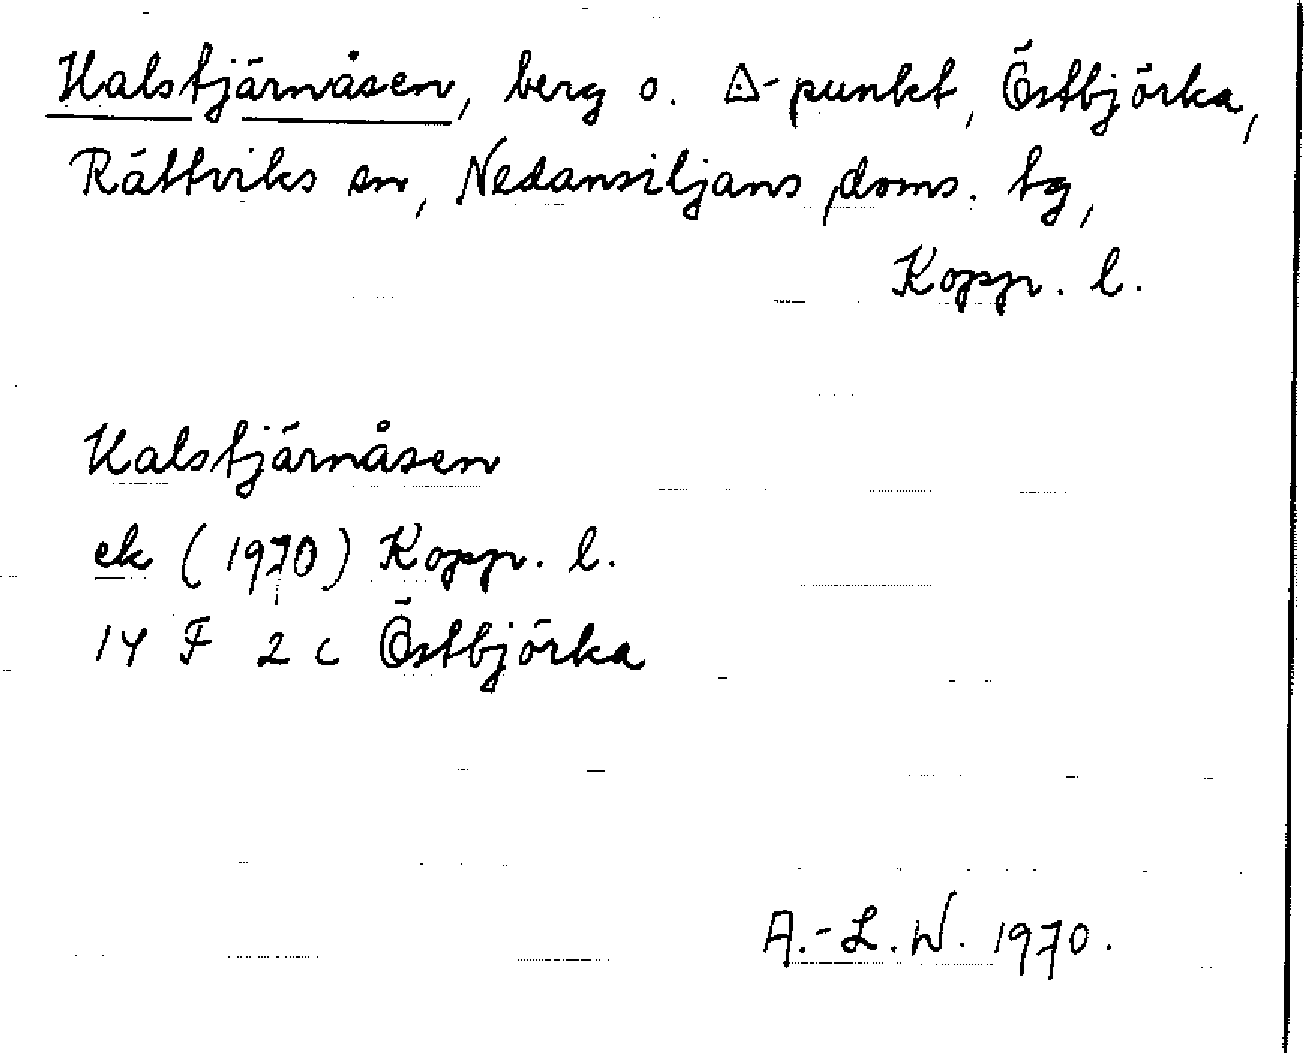 Halstjärnåsen, berg o. ◬-punkt, Östbjörka,
Rättviks sn, Nedansiljans doms. tg,
Kopp. l.
Halstjärnåsen
ek (1970) Kopp. l.
14 F 2 c Östbjörka
A.-L. W. 1970.